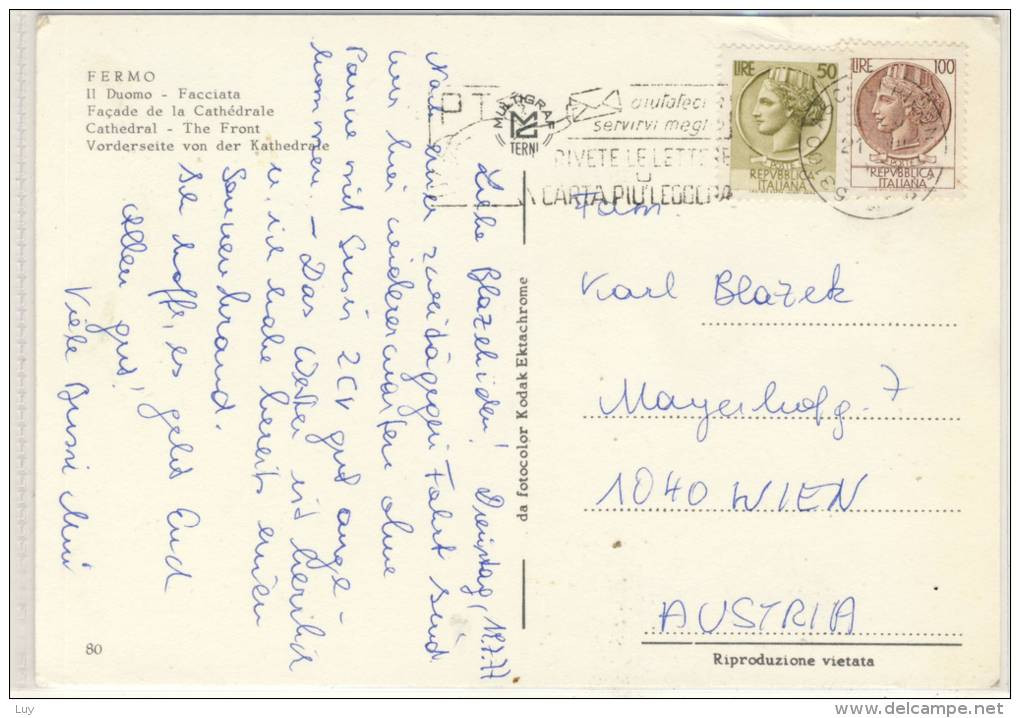 FERMO
Il Duomo - Facciata
Façade de la Cathédrale
Cathedral - The Front
Vorderseite von der Kathedrale
80
MULTIGRAF
TERNI
da fotocolor Kodak Ektachrome
Riproduzione vietata
aiutateci
servirvi megl
RIVETE LE LETTERE
U
CARTA PIU' LEGGERA
LIRE 50
POSTE
REPVBBLICA
ITALIANA
LIRE 100
POSTE
REPVBBLICA
ITALIANA
21
Fam
Karl Blazek
Mayerhofg. 7
1040 WIEN
AUSTRIA
Dienstag, 19.7.77
Liebe Blazekiden!
Nach einer zweitägigen Fahrt sind
wir hier wiedererwarten ohne
Panne mit Susis 2CV gut ange-
kommen. - Das Wetter ist herrlich
u. ich habe bereits einen
Sonnenbrand.
hoffe, es geht Euch
Allen gut!
Viele Bussi Mimi
Luy
delcampe.net